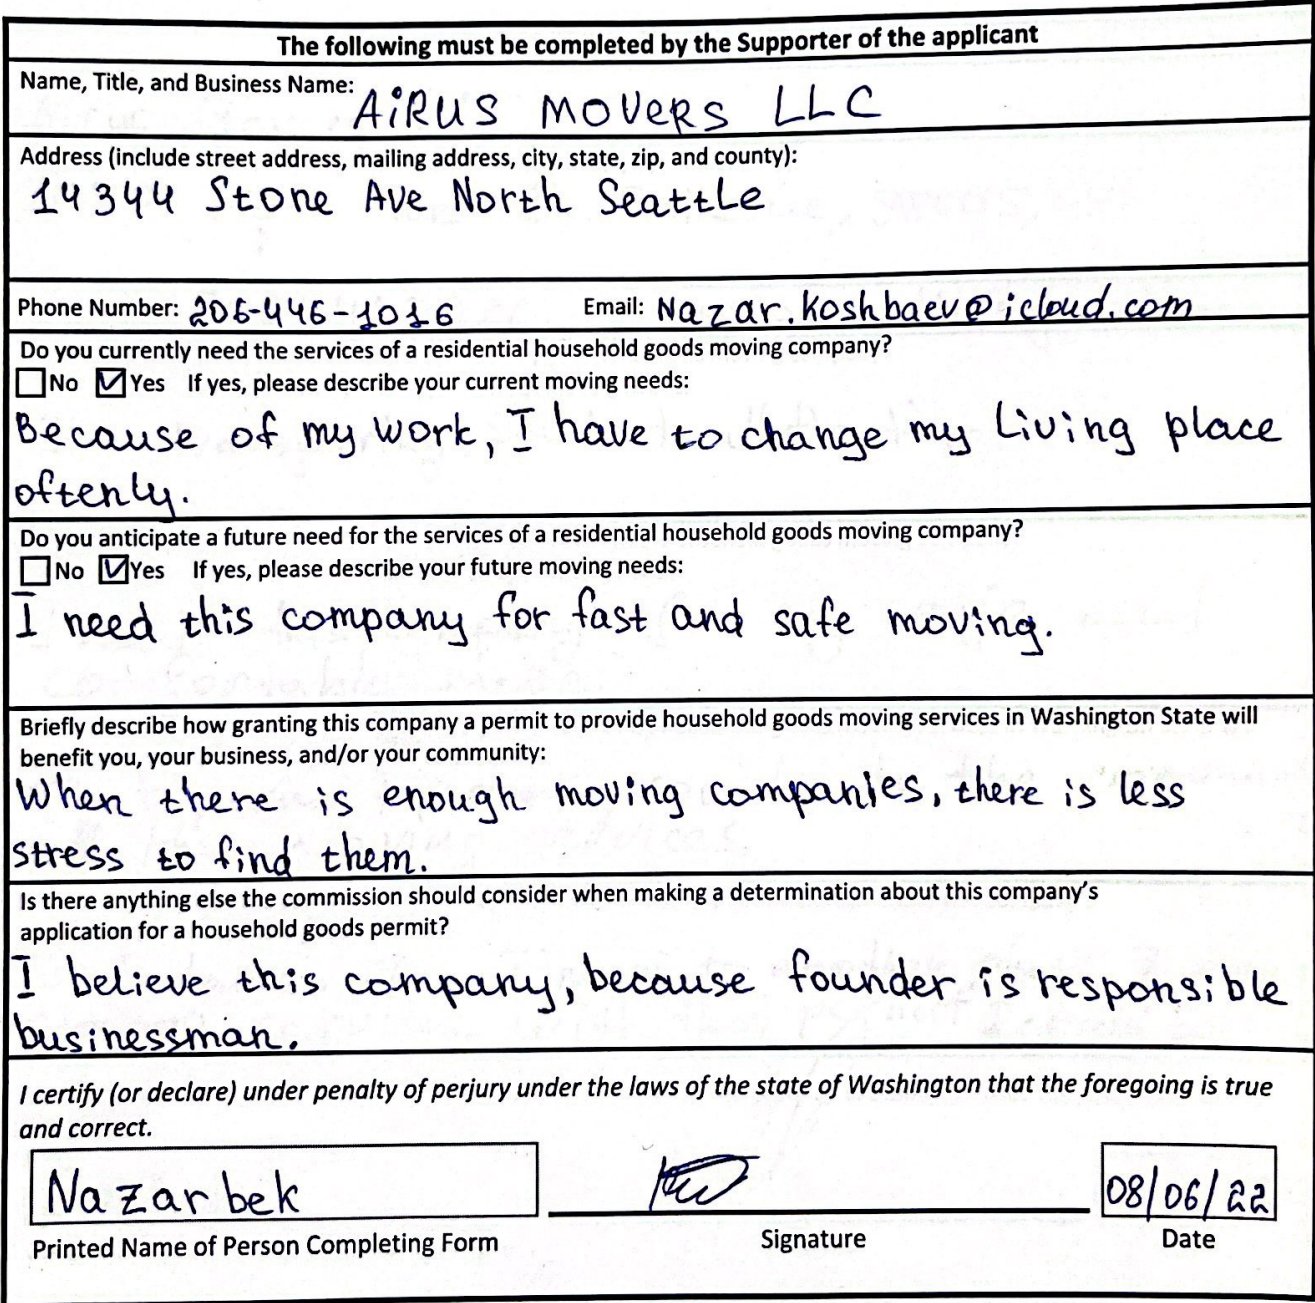 The following must be completed by the Supporter of the applicant
Name, Title, and Business Name: AiRUS MOVERS LLC
Address (include street address, mailing address, city, state, zip, and county):
14344 Stone Ave North Seattle
Phone Number: 206-446-1016 Email: Nazar.Koshbaev@icloud.com
Do you currently need the services of a residential household goods moving company?
No Yes If yes, please describe your current moving needs:
Because of my work, I have to change my Living place
oftenly.
Do you anticipate a future need for the services of a residential household goods moving company?
No Yes If yes, please describe your future moving needs:
I need this company for fast and safe moving.
Briefly describe how granting this company a permit to provide household goods moving services in Washington State will
benefit you, your business, and/or your community:
When there is enough moving companies, there is less
stress to find them.
Is there anything else the commission should consider when making a determination about this company's
application for a household goods permit?
I believe this company, because founder is responsible
businessman.
I certify (or declare) under penalty of perjury under the laws of the state of Washington that the foregoing is true
and correct.
Nazarbek 08/06/22
Printed Name of Person Completing Form Signature Date